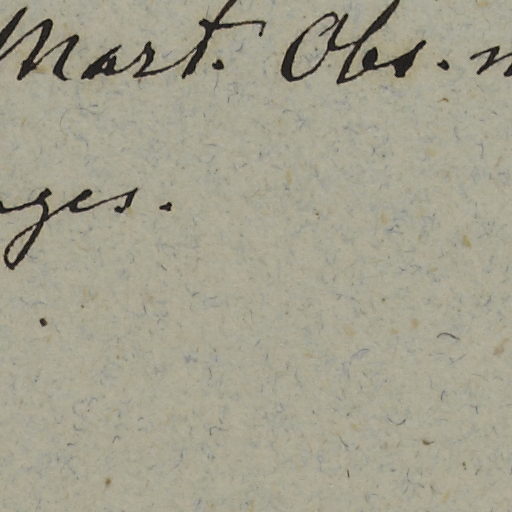 Mart. Obs. n
ges.